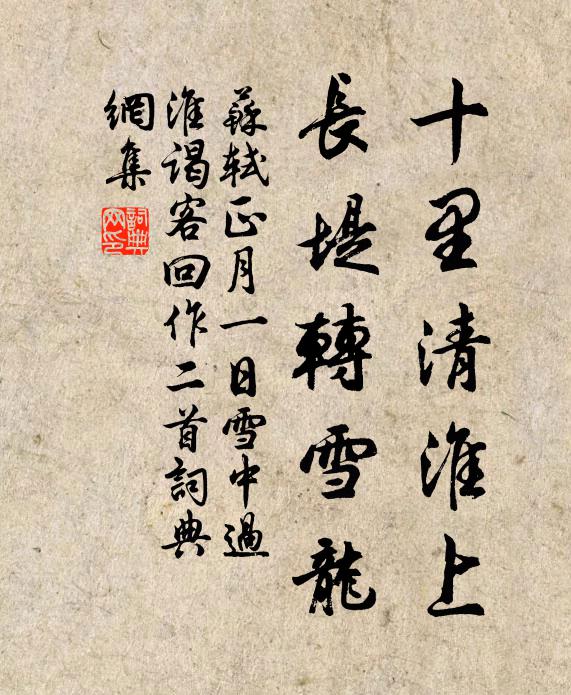 十里清淮上
長堤轉雪龍
蘇軾正月一日雪中過
淮謁客回作二首詞典
網集
詞典
网印